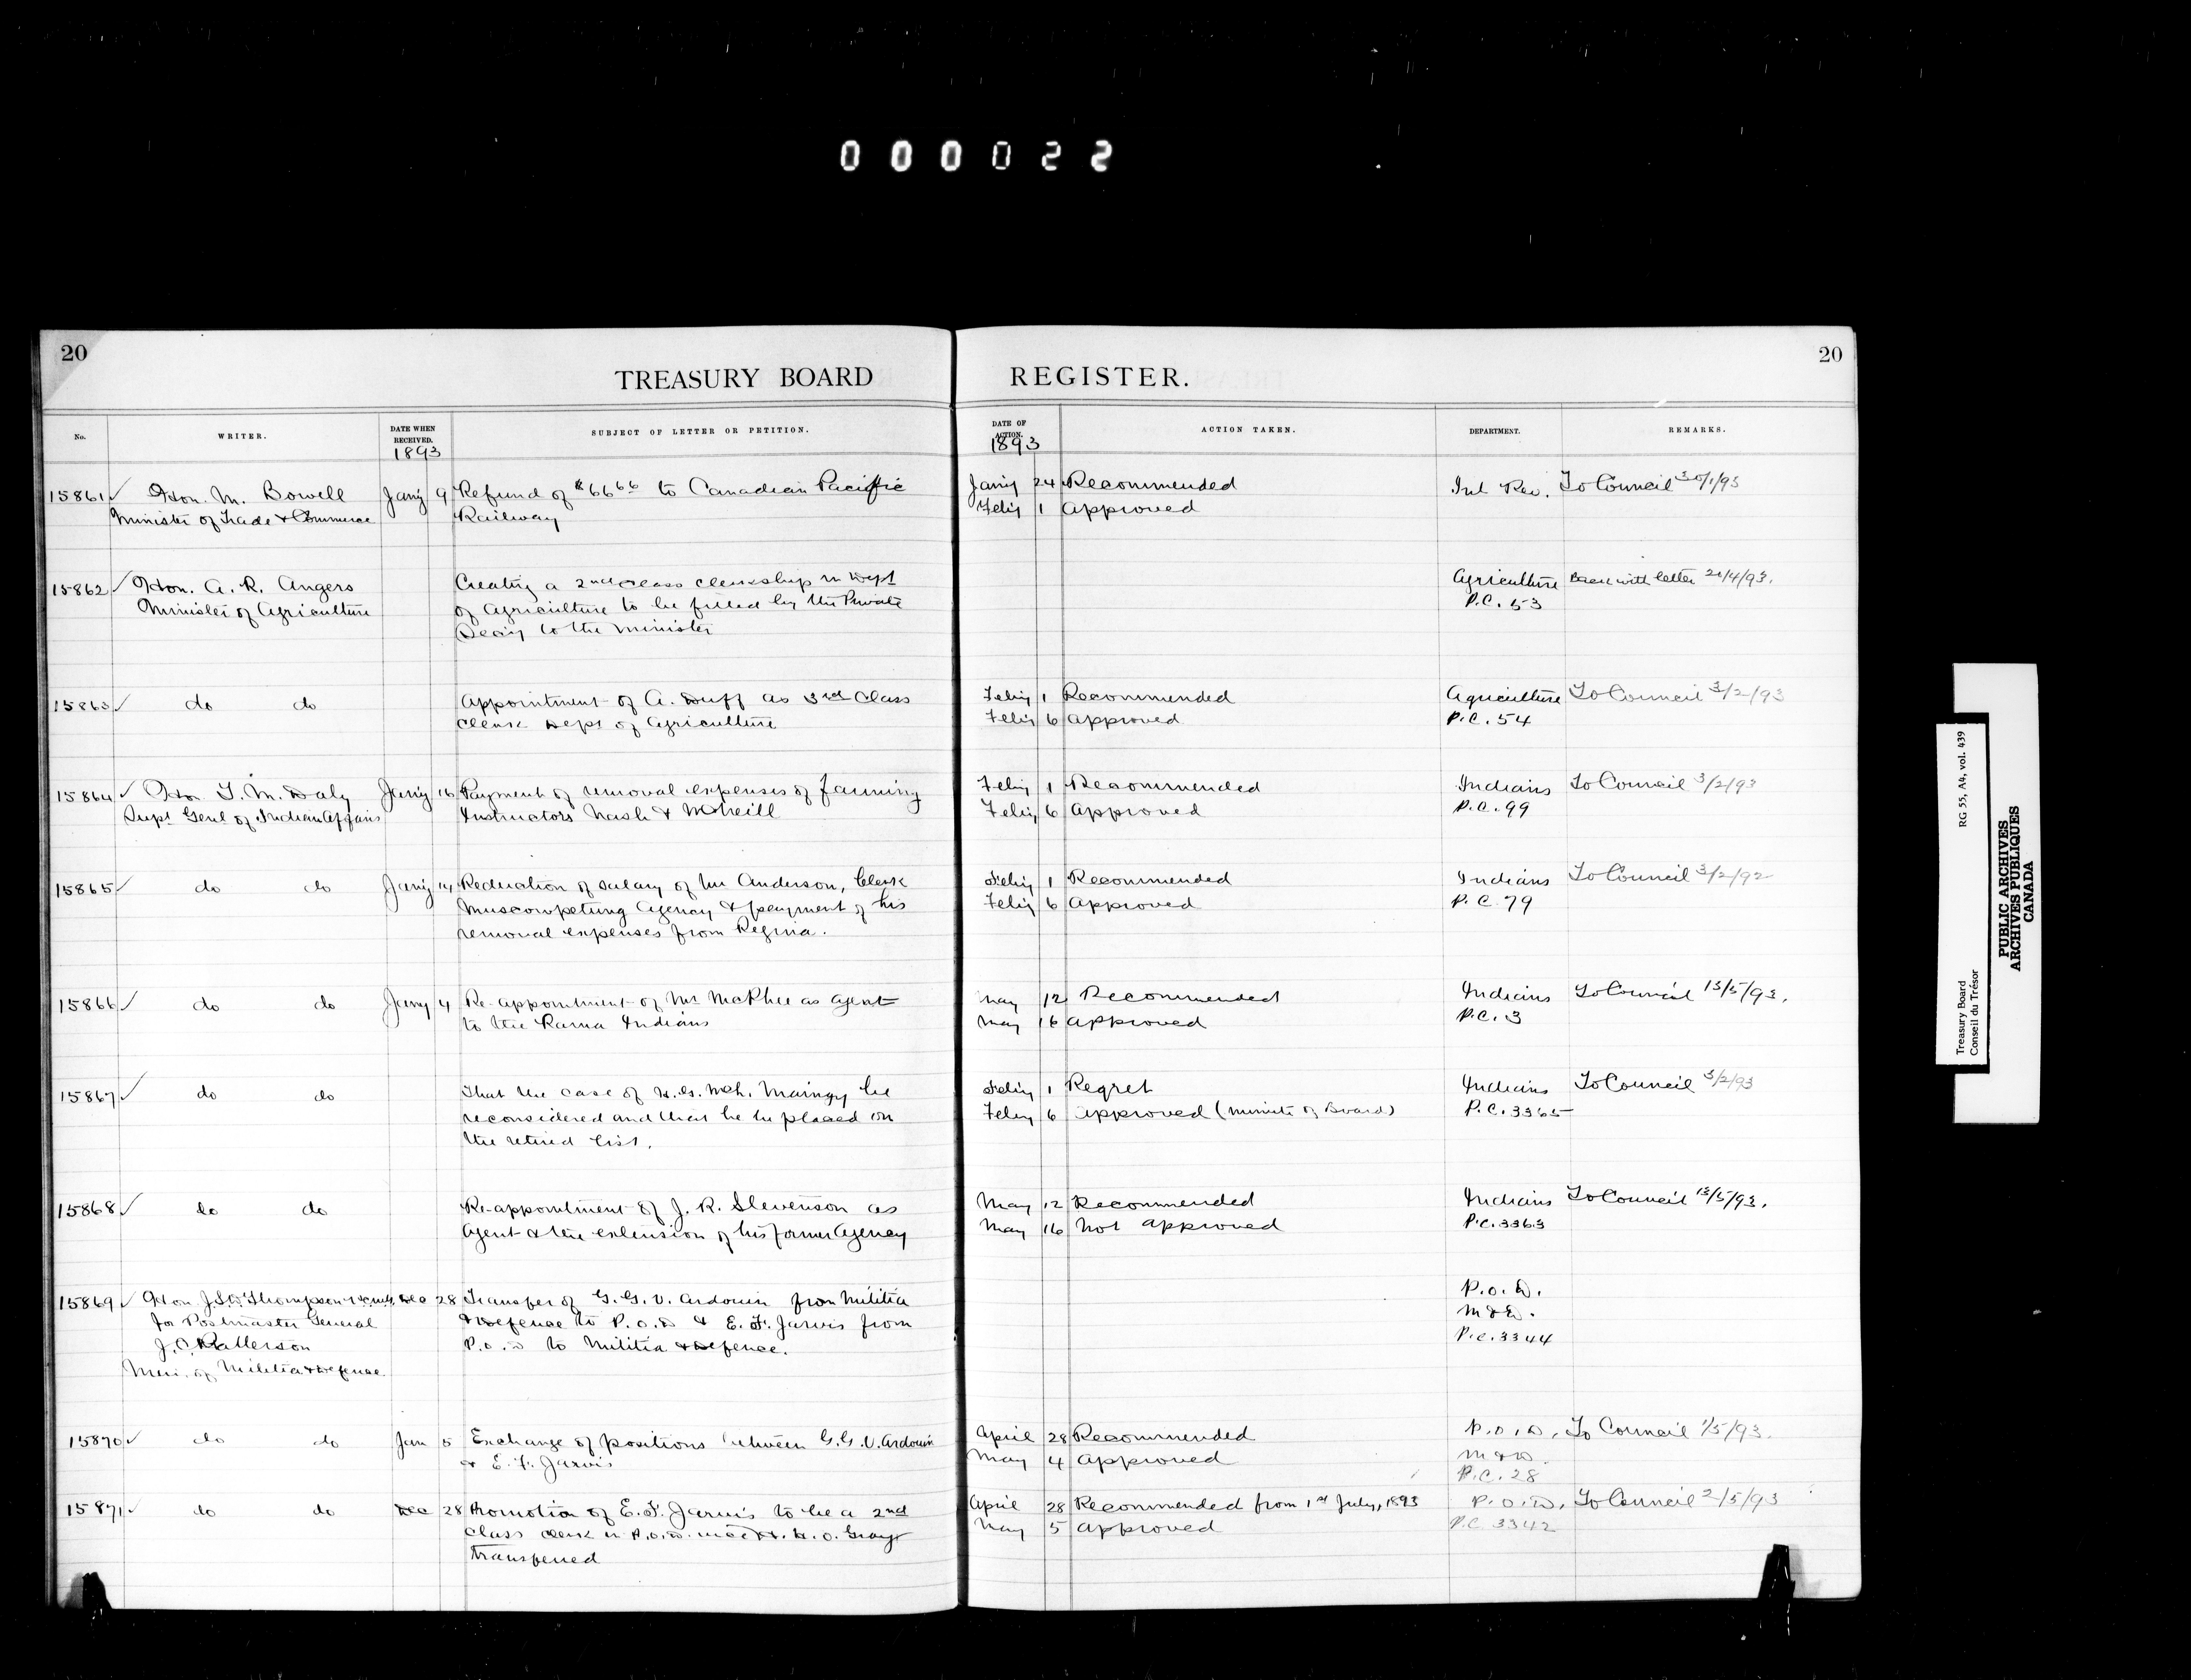 000022
20
20
TREASURY BOARD REGISTER.
No. WRITER. DATE WHEN RECEIVED. SUBJECT OF LETTER OR PETITION. DATE OF ACTION. ACTION TAKEN. DEPARTMENT. REMARKS.
1893 1893
15861 ✓ Hon. M. Bowell Jany 9 Refund of $66 66 to Canadian Pacific Jany 24 Recommended Inl Rev. To Council 30/1/93
Minister of Trade & Commerce Railway Feby 1 Approved
15862 ✓ Hon. A. R. Angers Creating a 2nd class clerkship in Dept Agriculture with letter 20/4/93.
Minister of Agriculture of Agriculture to be filled by the Private P.C. 53
Secy to the Minister
15863 ✓ do do Appointment of A. Duff as 3rd Class Feby 1 Recommended Agriculture To Council 3/2/93
Clerk Dept of Agriculture Feby 6 Approved P.C. 54
15864 ✓ Hon T. M. Daly Jany 16 Payment of removal expenses of farming Feby 1 Recommended Indians To Council 3/2/93
Supt Genl of Indian Affairs Instructors Nash & McNeill Feby 6 Approved P.C. 99
15865 ✓ do do Jany 14 Reduction of salary of Mr Anderson, Clerk Feby 1 Recommended Indians To Council 3/2/92
Muscowpetung Agency & payment of his Feby 6 Approved P.C. 79
removal expenses from Regina.
15866 ✓ do do Jany 4 Re-appointment of Mr McPhee as agent May 12 Recommended Indians To Council 13/5/93.
to the Rama Indians May 16 Approved P.C. 3
15867 ✓ do do That the case of Maingy be Feby 1 Regret Indians To Council 3/2/93
reconsidered and that he be placed on Feby 6 Approved (Minute of Board) P.C. 3365
the retired list.
15868 ✓ do do Re-appointment of J. R. Stevenson as May 12 Recommended Indians To Council 13/5/93.
Agent & the extension of his former Agency May 16 Not approved P.C. 3363
P.O.D.
15869 ✓ Hon J.S.D. Thompson Dec 28 Transfer of G. G. V. Ardouin from Militia M & D.
for Postmaster General & Defence to P.O.D & E. F. Jarvis from P.C. 3344
J. C. Patterson P.O.D to Militia & Defence.
Min. of Militia & Defence
15870 ✓ do do Jan 5 Exchange of positions between G. G. V. Ardouin April 28 Recommended P.O.D. To Council 1/5/93.
& E. F. Jarvis May 4 Approved M & D.
P.C. 28
15871 ✓ do do Dec 28 Promotion of E. F. Jarvis to be a 2nd April 28 Recommended from 1st July, 1893 P.O.D. To Council 2/5/93
Class clerk in P.O.D. vice H. O. Gray May 5 Approved P.C. 3342
transferred
RG 55, A4, vol. 439
Treasury Board
Conseil du Trésor
PUBLIC ARCHIVES
ARCHIVES PUBLIQUES
CANADA